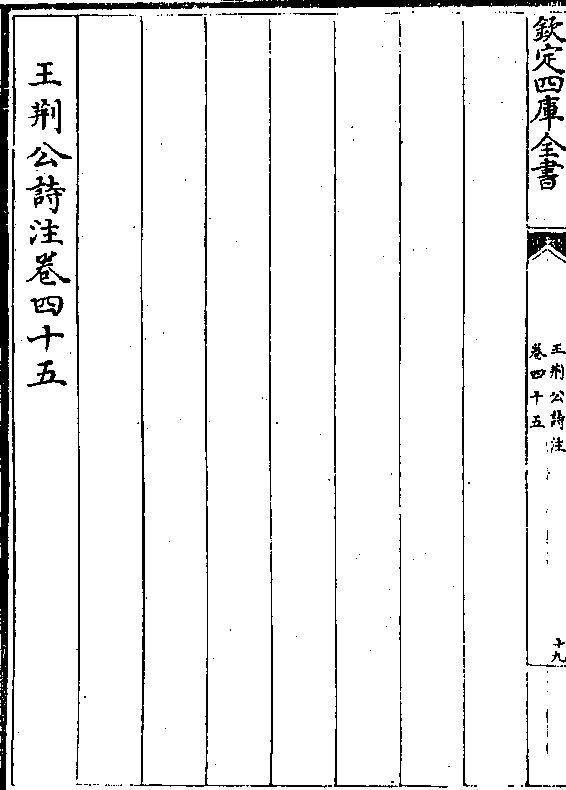 欽定四庫全書
王荆公詩注
卷四十五
十九
王荆公詩注卷四十五